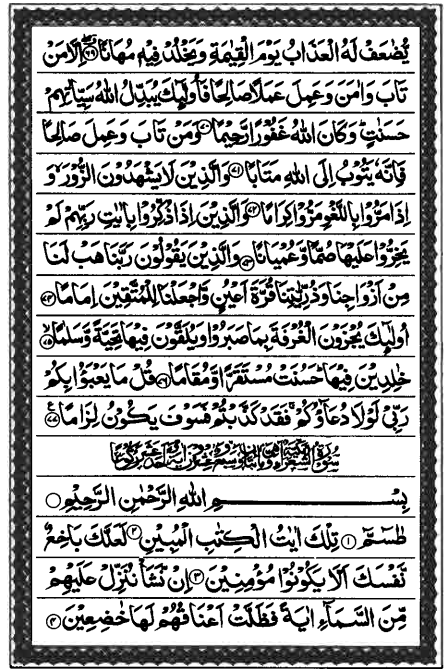 يُّضٰعَفۡ لَهُ الۡعَذَابُ يَوۡمَ الۡقِيٰمَةِ وَيَخۡلُدۡ فِيۡهٖ مُهَانًا ۖ‏﴿۶۹﴾ اِلَّا مَنۡ
تَابَ وَاٰمَنَ وَعَمِلَ عَمَلًا صَالِحًـا فَاُولٰٓٮِٕكَ يُبَدِّلُ اللّٰهُ سَيِّاٰتِهِمۡ
حَسَنٰتٍ‌ ؕ وَكَانَ اللّٰهُ غَفُوۡرًا رَّحِيۡمًا ﴿۷۰﴾ وَمَنۡ تَابَ وَعَمِلَ صَالِحًـا
فَاِنَّهٗ يَتُوۡبُ اِلَى اللّٰهِ مَتَابًا ﴿۷۱﴾ وَالَّذِيۡنَ لَا يَشۡهَدُوۡنَ الزُّوۡرَۙ وَ
اِذَا مَرُّوۡا بِاللَّغۡوِ مَرُّوۡا كِرَامًا ﴿۷۲﴾ وَالَّذِيۡنَ اِذَا ذُكِّرُوۡا بِاٰيٰتِ رَبِّهِمۡ لَمۡ
يَخِرُّوۡا عَلَيۡهَا صُمًّا وَّعُمۡيَانًا ﴿۷۳﴾ وَالَّذِيۡنَ يَقُوۡلُوۡنَ رَبَّنَا هَبۡ لَـنَا
مِنۡ اَزۡوَاجِنَا وَذُرِّيّٰتِنَا قُرَّةَ اَعۡيُنٍ وَّاجۡعَلۡنَا لِلۡمُتَّقِيۡنَ اِمَامًا ﴿۷۴﴾
اُولٰٓٮِٕكَ يُجۡزَوۡنَ الۡغُرۡفَةَ بِمَا صَبَرُوۡا وَيُلَقَّوۡنَ فِيۡهَا تَحِيَّةً وَّسَلٰمًا ۙ‏﴿۷۵﴾
خٰلِدِيۡنَ فِيۡهَا‌ ؕ حَسُنَتۡ مُسۡتَقَرًّا وَّمُقَامًا ﴿۷۶﴾ قُلۡ مَا يَعۡبَـؤُا بِكُمۡ
رَبِّىۡ لَوۡلَا دُعَآؤُكُمۡ‌ۚ فَقَدۡ كَذَّبۡتُمۡ فَسَوۡفَ يَكُوۡنُ لِزَامًا ﴿۷۷﴾
بِسۡمِ اللّٰهِ الرَّحۡمٰنِ الرَّحِيۡمِ
طٰسٓمّٓ ﴿۱﴾ تِلۡكَ اٰيٰتُ الۡكِتٰبِ الۡمُبِيۡنِ ﴿۲﴾ لَعَلَّكَ بَاخِعٌ
نَّـفۡسَكَ اَلَّا يَكُوۡنُوۡا مُؤۡمِنِيۡنَ ﴿۳﴾ اِنۡ نَّشَاۡ نُنَزِّلۡ عَلَيۡهِمۡ
مِّنَ السَّمَآءِ اٰيَةً فَظَلَّتۡ اَعۡنَاقُهُمۡ لَهَا خٰضِعِيۡنَ ﴿۴﴾